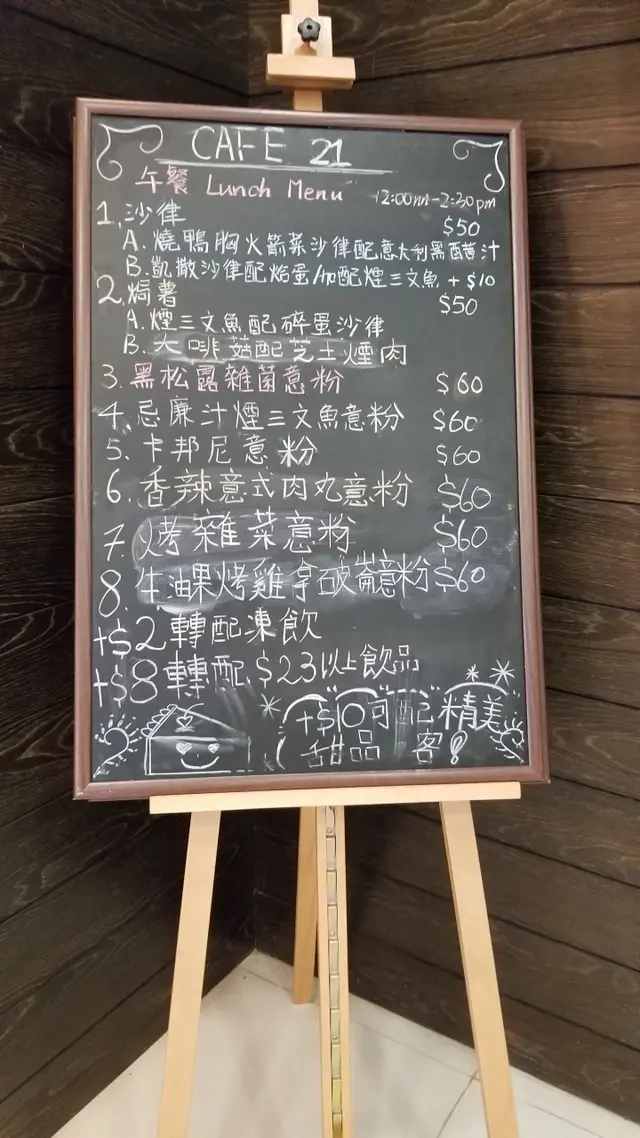 CAFE 21
午餐 Lunch Menu 12:00nn-2:30pm
1. 沙律 $50
A. 燒鴨胸火箭菜沙律配意大利黑醋汁
B. 凱撒沙律配焓蛋/加配煙三文魚 + $10
2. 焗薯 $50
A. 煙三文魚配碎蛋沙律
B. 大啡菇配芝士煙肉
3. 黑松露雜菌意粉 $60
4. 忌廉汁煙三文魚意粉 $60
5. 卡邦尼意粉 $60
6. 香辣意式肉丸意粉 $60
7. 烤雜菜意粉 $60
8. 牛油果烤雞拿破崙意粉 $60
+$2 轉配凍飲
+$8 轉配 $23以上飲品
+$10可配精美
甜品